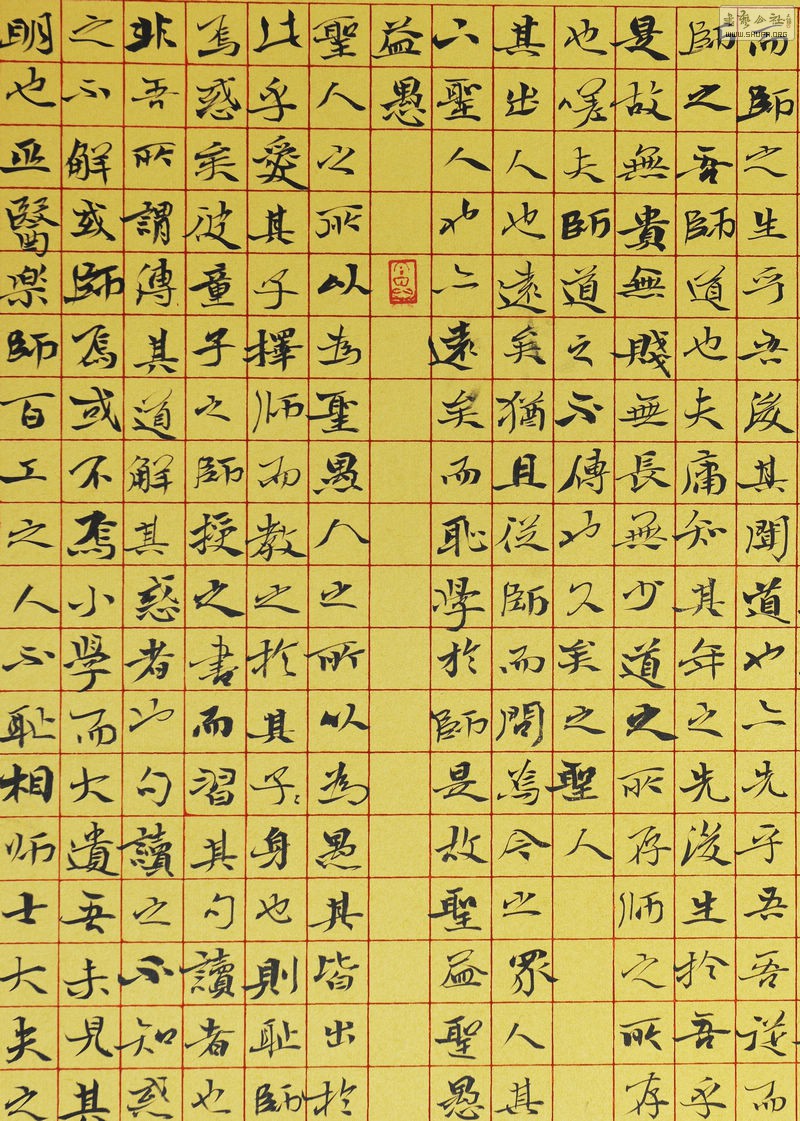 而師之生乎吾後其聞道也亦先乎吾吾從而
師之吾師道也夫庸知其年之先後生於吾乎
是故無貴無賤無長無少道之所存師之所存
也嗟夫師道之不傳也久矣之聖人
其出人也遠矣猶且從師而問焉今之眾人其
下聖人也亦遠矣而恥學於師是故聖益聖愚
益愚
聖人之所以為聖愚人之所以為愚其皆出於
此乎愛其子擇師而教之於其子〻身也則恥師
焉惑矣彼童子之師授之書而習其句讀者也
非吾所謂傳其道解其惑者也句讀之不知惑
之不解或師焉或不焉小學而大遺吾未見其
明也巫醫楽師百工之人不恥相師士大夫之
書藝公社
WWW.SHUFA.ORG